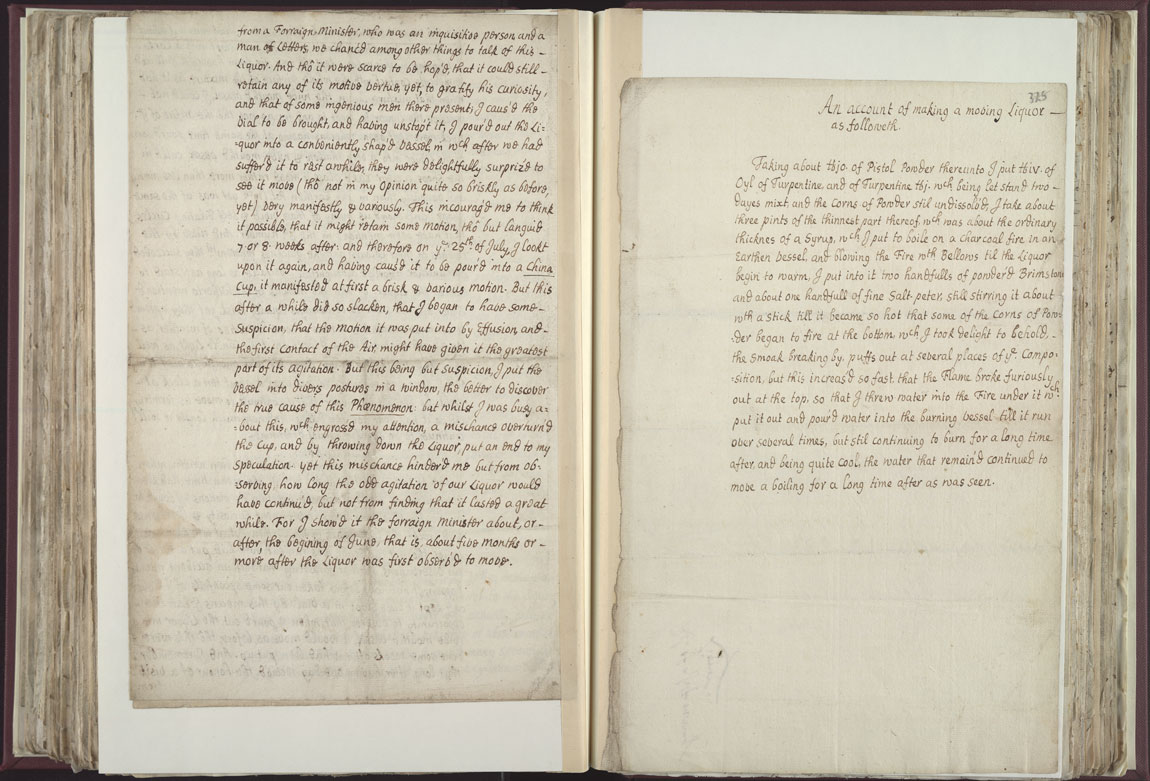 from a Forraign Minister, who was an inquisitive person and a
man of Letters, we chanc'd among other things to talk of this
Liquor. And tho' it were scarce to be hop'd, that it could still
retain any of its motive vertue, yet, to gratify his curiosity,
and that of some ingenious men there present, J caus'd the
vial to be brought, and having unstopt it, J pour'd out the Li=
=quor into a conveniently shap'd vessel, in wch after we had
suffer'd it to rest awhile, they were delightfully surpriz'd to
see it move (tho' not in my Opinion quite so briskly as before,
yet) very manifestly & variously. This incourag'd me to think
it possible, that it might retain some motion, tho' but languid
7 or 8 weeks after: and therefore on ye 25th of July, J lookt
upon it again, and having caus'd it to be pour'd into a China
Cup, it manifested at first a brisk & various motion. But this
after a while did so slacken, that J began to have some
suspicion, that the motion it was put into by Effusion, and
the first contact of the Air might have given it the greatest
part of its agitation. But this being but suspicion, J put the
vessel into divers postures in a window, the better to discover
the true cause of this Phænomenon: but whilst J was busy a=
=bout this, wch engross'd my attention, a mischance overturn'd
the Cup, and by throwing down the Liquor put an end to my
speculation. yet this mischance hinder'd me but from ob=
=serving, how long the odd agitation of our Liquor would
have continu'd, but not from finding that it lasted a great
while. For J show'd it the forraign Minister about, or
after, the begining of June, that is, about five months or
more after the Liquor was first observ'd to move.
325
An account of making a moving Liquor
as followeth.
Taking about ℔jo. of Pistol Powder thereunto J put ℔iv. of
Oyl of Turpentine, and of Turpentine ℔j. wch being let stand two
dayes mixt, and the Corns of Powder stil undissolv'd, J take about
three pints of the thinnest part thereof, wch was about the ordinary
thicknes of a Syrup, wch J put to boile on a charcoal fire in an
Earthen vessel, and blowing the Fire wth Bellows til the Liquor
begin to warm, J put into it two handfulls of powder'd Brimstone
and about one handfull of fine Salt-peter, still stirring it about
wth a stick till it became so hot that some of the Corns of Pow
=der began to fire at the bottom, wch J took delight to behold,
the smoak breaking by puffs out at several places of ye Compo=
=sition, but this increas'd so fast that the Flame broke furiously
out at the top, so that J threw water into the Fire under it wch
put it out and pour'd water into the burning vessel till it run
over several times, but stil continuing to burn for a long time
after, and being quite cool, the water that remain'd continued to
move a boiling for a long time after as was seen.